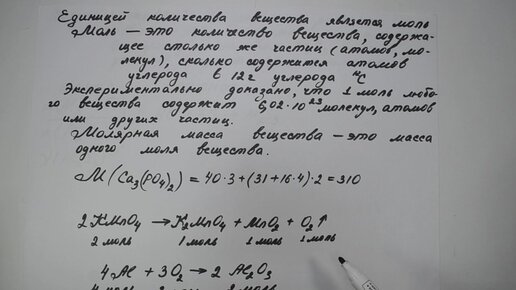 Единицей количества вещества является моль
Моль – это количество вещества, содержа-
щее столько же частиц (атомов, мо-
лекул), сколько содержится атомов
углерода в 12 г углерода ¹²C
Экспериментально доказано, что 1 моль любо-
го вещества содержит 6,02·10²³ молекул, атомов
или других частиц.
Молярная масса вещества – это масса
одного моля вещества.
M(Ca₃(PO₄)₂) = 40·3+(31+16·4)·2=310
2KMnO₄ → K₂MnO₄ + MnO₂ + O₂↑
2 моль 1 моль 1 моль 1 моль
4Al + 3O₂ → 2Al₂O₃